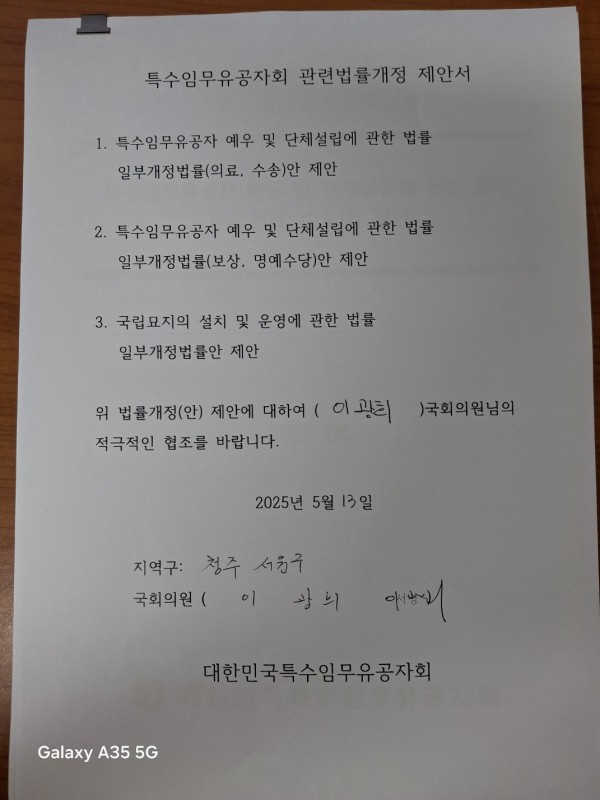 특수임무유공자회 관련법률개정 제안서
1. 특수임무유공자 예우 및 단체설립에 관한 법률
일부개정법률(의료, 수송)안 제안
2. 특수임무유공자 예우 및 단체설립에 관한 법률
일부개정법률(보상, 명예수당)안 제안
3. 국립묘지의 설치 및 운영에 관한 법률
일부개정법률안 제안
위 법률개정(안) 제안에 대하여 ( 이광희 )국회의원님의
적극적인 협조를 바랍니다.
2025년 5월 13일
지역구: 청주 서원구
국회의원 ( 이 광 희
대한민국특수임무유공자회
Galaxy A35 5G